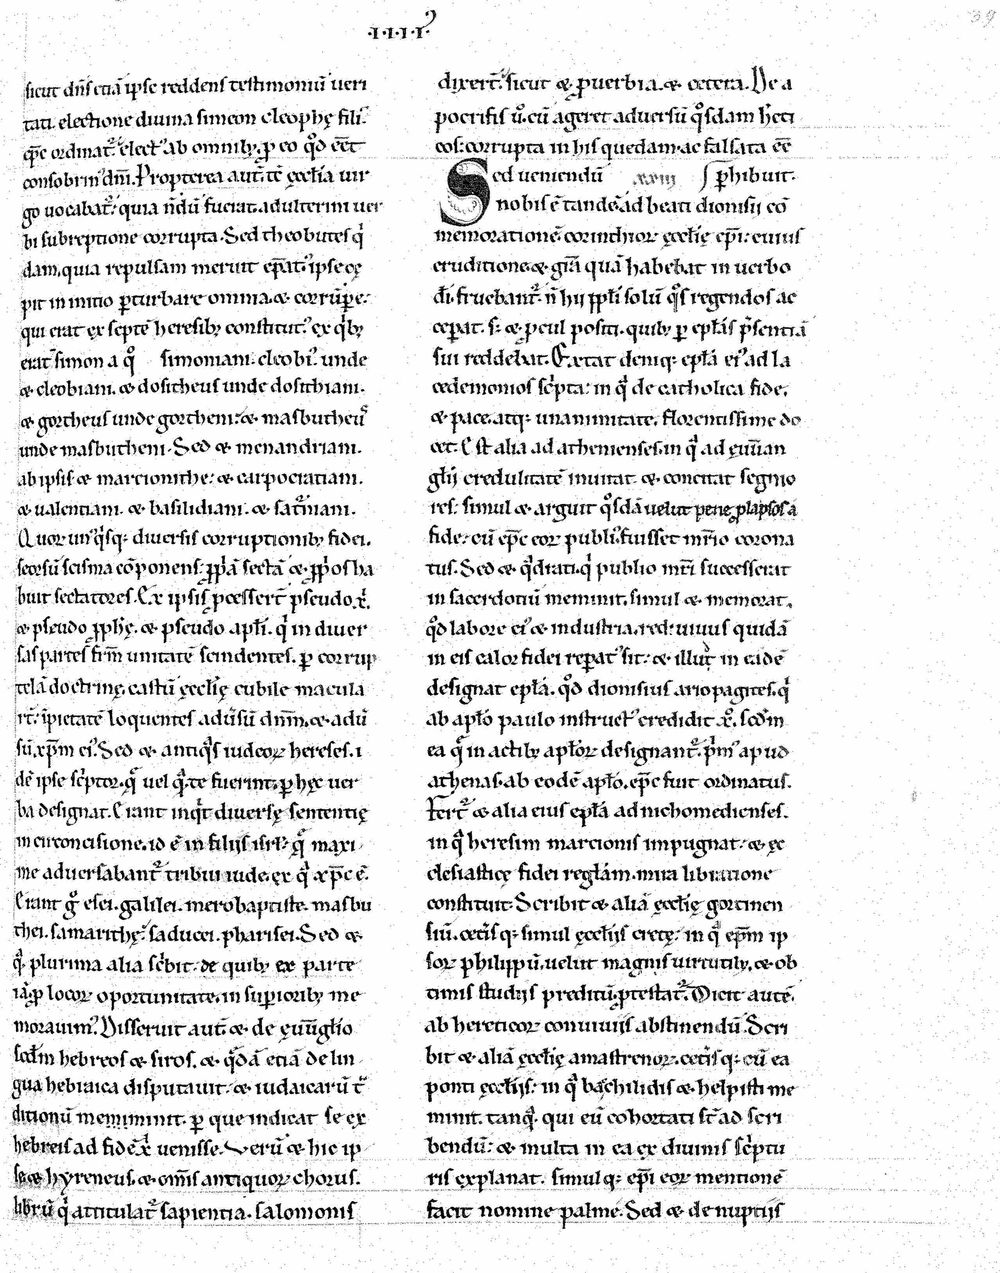 ·I·I·I·I·
39
sicut dn̄s etiā ipse reddens testimoniū veri
tati. electione divina simeon cleophę fili᷒
ep̄c ordinat᷒. elect᷒ ab omnib; ꝑ eo qḋ eēt
consobrin᷒ dn̄i. Propterea aut̄ tc̄ ęccl̄ia vir
go vocabat᷒: quia nōdū fuerat adulterini ver
bi subreptione corrupta. Sed theobutes q̇
dam, quia repulsam meruit ep̄at᷒ ipse cę
pit in initio ꝑturbare omnia. & corrūpe:
qui erat ex septē heresib; constitut᷒. ex q̇b;
erat simon a q̊ simoniani. cleobi᷒ unde
& cleobiani. & dositheus unde dosithiani.
& gortheus unde gortheni: & masbutheus
unde masbutheni. Sed & menandriani.
ab ipsis & marcionithe: & carpocratiani.
& valentiani. & basilidiani. & saturniani.
Quor̄ un᷒q̇sq; diversis corruptionib; fidei.
seorsū scisma cōponens: ꝓpͥā sectā & ꝓpͥos ha
buit sectatores. Ex ipsis pcesserт̄ pseudo x̄.
& pseudo ꝓph̄ę. & pseudo apl̄i. q̇ in diver
sas partes fr̄m unitatē scindentes. ꝑ corrup
telā doctrinę. castū ęccl̄ię cubile macula
rt̄. īpietatē loquentes adūsū dn̄m. & adū
sū xp̄m ei᷒. Sed & antiq̇s iudeor̄ hereses. i
dē ipse sc̄ptor. q̄ vel q̇te fuerint. ꝑ hęc ver
ba designat. Erant inq̇t diversę sententię
in circoncisione. id ē in filijs isrl̄. quę maxi
me adversabant᷒ tribui iude. ex q̇ xp̄c ē.
Erant g̊ esei. galilei. merobaptiste. masbu
thei. samarithę. saducei. pharisei. Sed &
q̇ plurima alia sc̄bit: de quib; ex parte
iā ꝓ locor̄ oportunitate. in suꝑiorib; me
moravim᷒. Disseruit aut̄ & de ęuūglio
scd̄m hebreos & siros. & q̇dā etiā de lin
gua hebraica disputavit: & iudaicarū t̄
ditionū meminimit. ꝑ que indicat se ex
hebreis ad fidē x̄ venisse. Verū & hic ip
se & hyreneus. & om̄is antiquor̄ chorus.
librū q̇ attitulat᷒ sapientia. salomonis
dixert̄. sicut & ꝓverbia. & cetera. De a
pocrifis ū. cū ageret adversū q̊sdam h̄eti
cos: corrupta in his quedam. ac falsata eē
Sed veniendū xxiii ꝑhibuit.
nobis ē tandē ad beati dionisii cō
memorationē. corinthior̄ ęccl̄ię ep̄i: cuius
eruditione & grā quā habebat in verbo
di. fruebant᷒. n̄ hij ppl̄i solū q̊s regendos ac
ceperat. s: & pcul positi. quib; ꝑ epl̄as p̄sentiā
sui reddebat. Extat deniq; epl̄a ei᷒ ad la
cedemonios sc̄pta: in q̇ de catholica fide.
& pace. atq; unanimitate. florentissime do
cet. Est alia ad athenienses. in q̇ ad ęuuan
glij credulitatē invitat & concitat segnio
res: simul & arguit q̊sdā velut pene ꝓlapsos a
fide: cū ep̄c eor̄ publi᷒ fuisset mr̄io corona
tus. Sed & q̇drati. q̇ publio mr̄i successerat
in sacerdotiū meminit. simul & memorat.
qḋ labore ei᷒ & industria. redivivus quidā
in eis calor fidei reꝑat᷒ sit: & illud in eadē
designat epl̄a. qḋ dionisius ariopagites. q̇
ab aplo paulo instruct᷒ credidit x̊. scd̄m
ea q̄ in actib; aplor̄ designant᷒. p̄m᷒ apud
athenas. ab eodē aplo. ep̄c fuit ordinatus.
Fert᷒ & alia eius epl̄a ad nichomedienses.
in q̇ heresim marcionis impugnat: & ęc
clesiasticę fidei reglam. mira libratione
constituit. Scribit & aliā ęccl̄ię gortinen
siū. cet̄isq; simul ęccl̄ijs cretę: in q̇ ep̄m ip
sor̄ philippū. velut magnis virtutib;. & ob
timis studijs preditū. ꝓtestat᷒. Dicit autē.
ab hereticor̄ convivijs abstinendū. Scri
bit & aliā ęccl̄ię amastrenor̄. cet̄isq; cū ea
ponti ęccl̄ijs: in q̇ bachilidis & helpisti me
minit. tanq̇ qui eū cohortati st̄ ad scri
bendū: & multa in ea ex divinis sc̄ptu
ris explanat. simulq; ep̄i eor̄ mentionē
facit nomine palme. Sed & de nuptijs